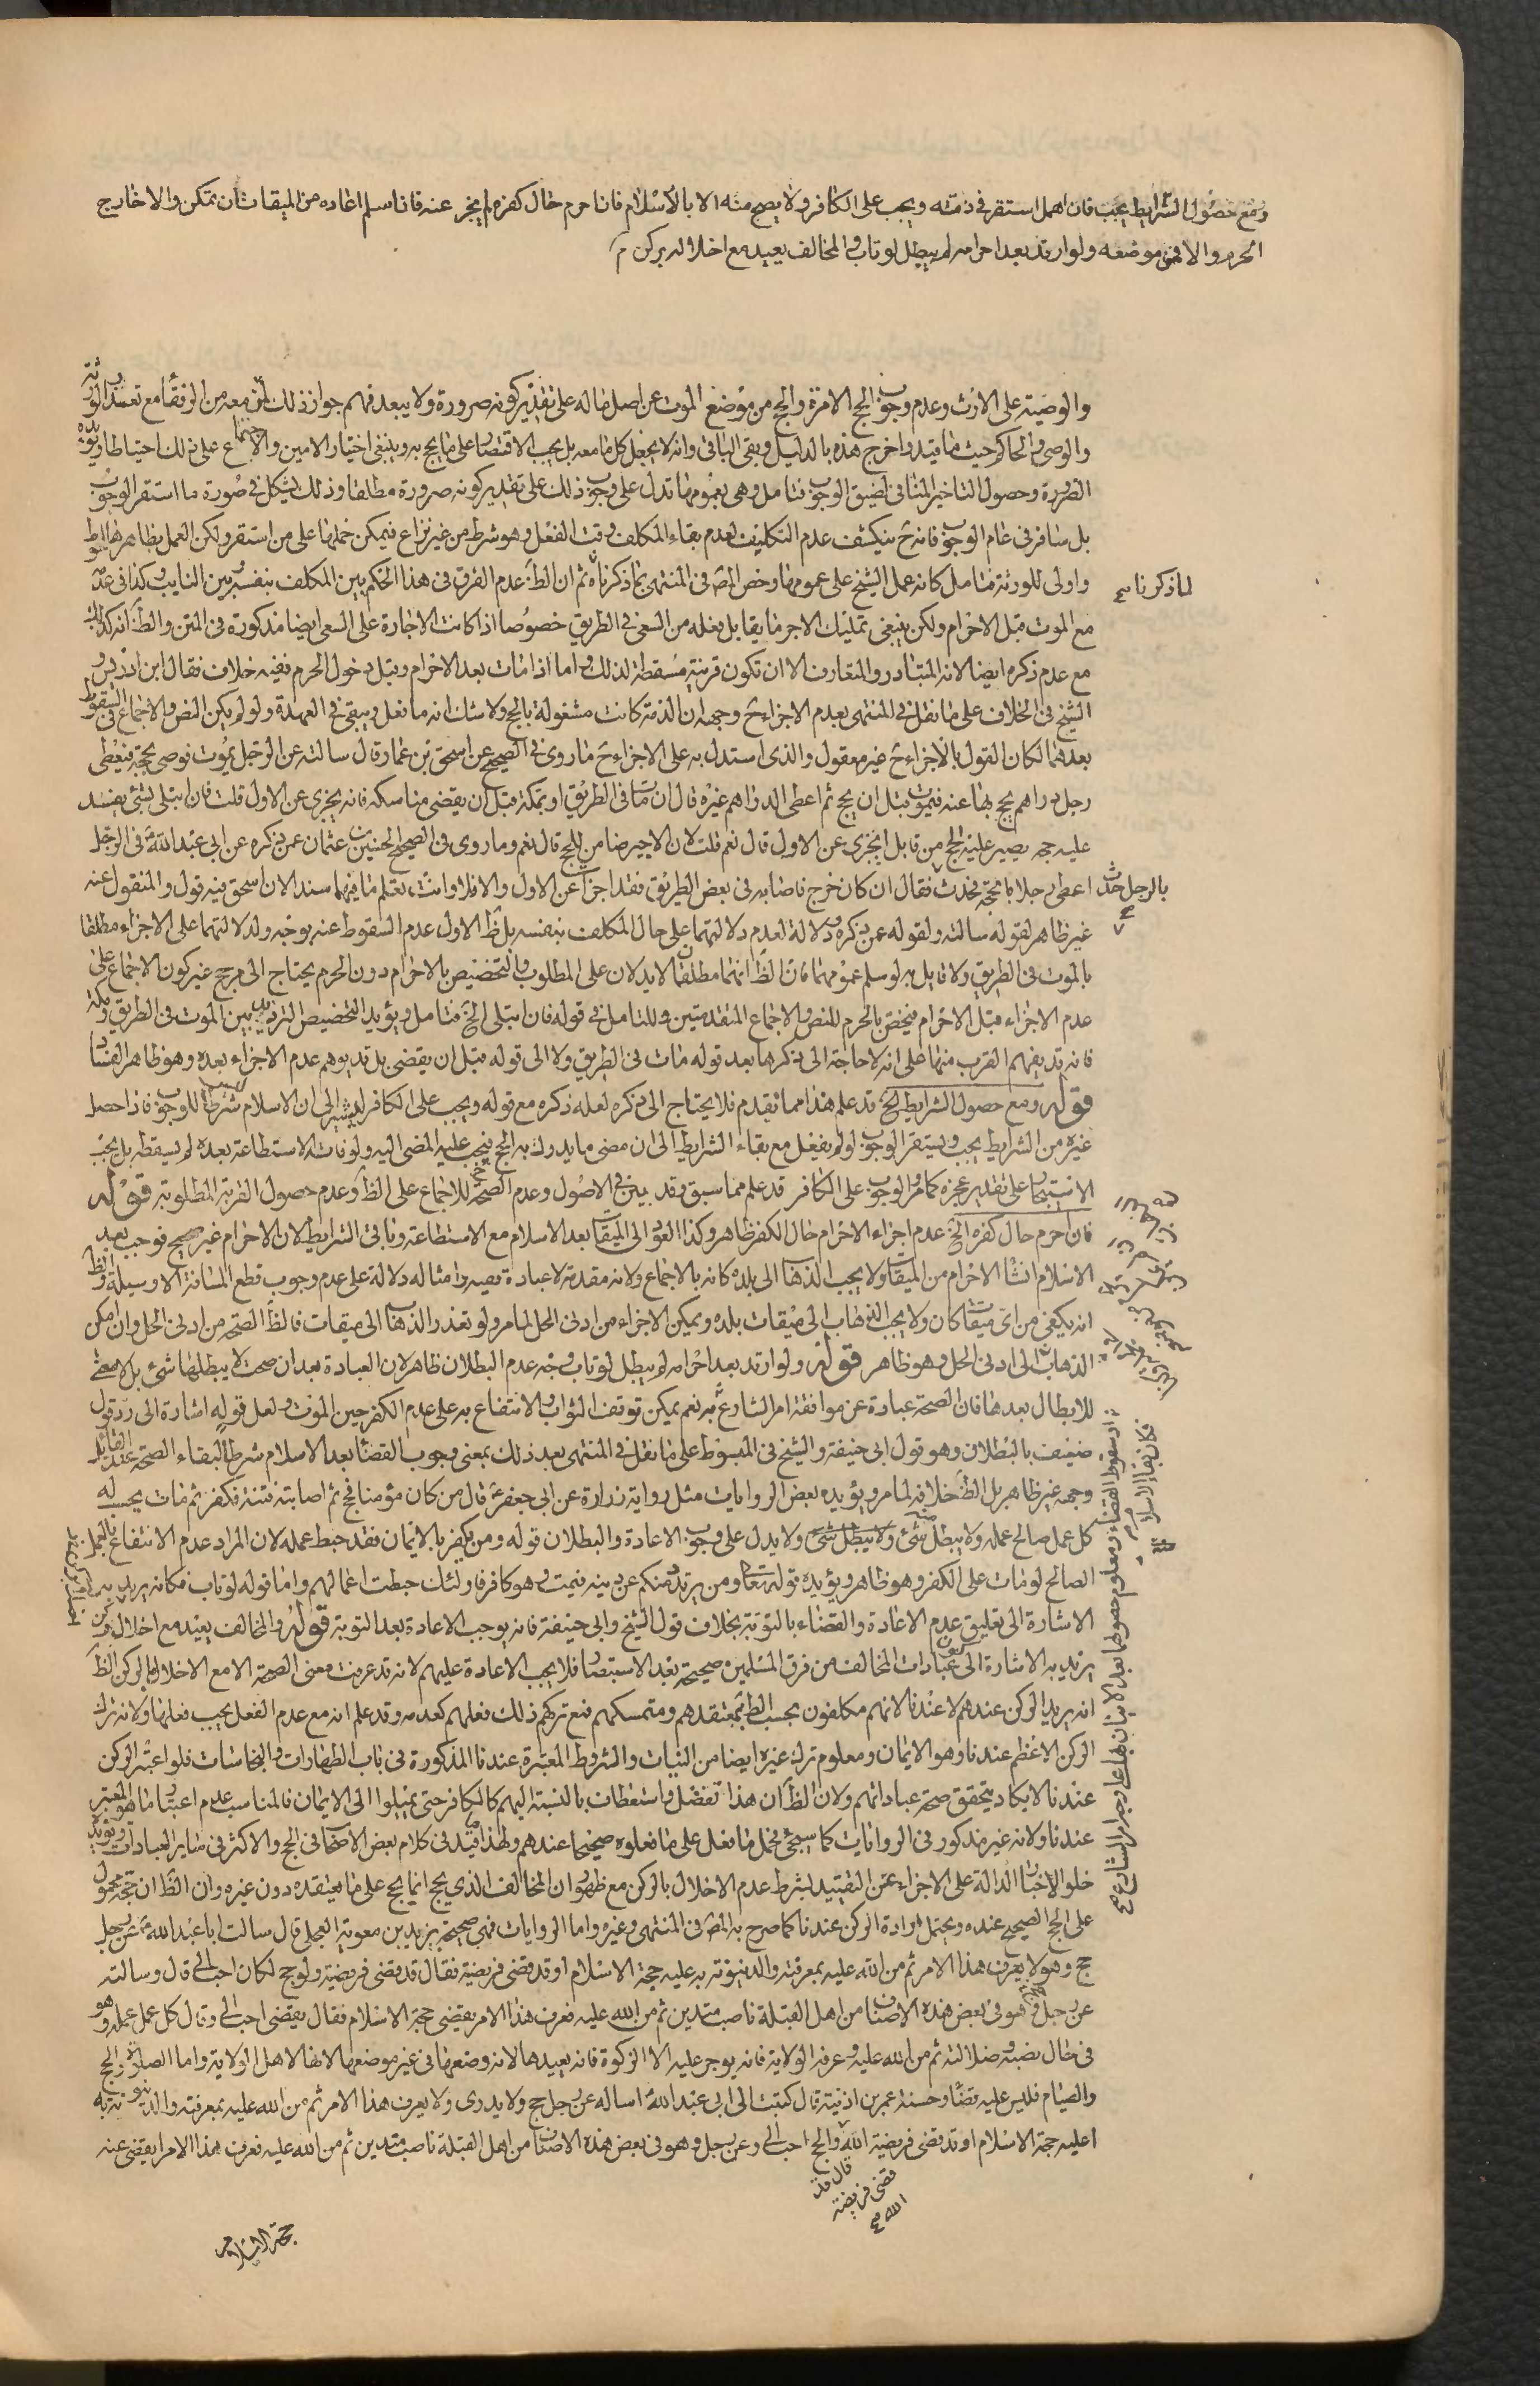 ومع حصول الشرايط يجب فان اهمل استقر في ذمته ويجب على الكافر ولا يصح منه الا بالاسلام فان احرم حال كفره لم يجز عنه فان اسلم اعاده من الميقات ان تمكن والا خارج
الحرم والا فمن موضعه ولو ارتد بعد احرامه لم يبطل لو تاب والمخالف يعيد مع اخلاله بركن
والوصية على الارث وعدم وجوب الحج الا مرة والحج من موضع الموت عن اصل ماله على تقدير كونه صرورة ولا يبعد فهم جواز ذلك لمن معه من الرفقا مع تعذر الورثة
والوصي والحاكم حيث ما قيد واخرج هذه بالدليل وبقي الباقي وانه لا يجعل كل ما معه بل يجب الاقتصار على ما يحج به وينبغي اختيار الامين والاجتماع على ذلك احتياطا ويؤيده
الضرورة وحصول التاخير المنافي لضيق الوجوب فتامل وهي بعمومها تدل على وجوب ذلك على تقدير كونه صرورة مطلقا وذلك يشكل في صورة ما استقر الوجوب
بل سافر في عام الوجوب فانه ح ينكشف عدم التكليف لعدم بقاء المكلف وقت الفعل وهو شرط من غير نزاع فيمكن حملها على من استقر ولكن العمل بظاهرها احوط
واولى للورثة فتامل كانه عمل الشيخ على عمومها وخص المص في المنتهى بما ذكرناه ثم ان الظ عدم الفرق في هذا الحكم بين المكلف بنفسه وبين النايب وكذا في عدمه
لما ذكرنا صح
مع الموت قبل الاحرام ولكن ينبغي تمليك الاجر ما يقابل فعله من السعي في الطريق خصوصا اذا كانت الاجارة على السعي ايضا مذكورة في المتن والظ انه كذلك
مع عدم ذكره ايضا لانه المتبادر والمتعارف الا ان تكون قرينة مسقطة لذلك واما اذا مات بعد الاحرام وقبل دخول الحرم ففيه خلاف فقال ابن ادريس و
الشيخ في الخلاف على ما نقل في المنتهى بعدم الاجزاء ح وجهه ان الذمة كانت مشغولة بالحج ولا شك انه ما فعل ويبقى في العهدة ولو لم يكن النص والاجماع في السقوط
بعدهما لكان القول بالاجزاء ح غير معقول والذي استدل به على الاجزاء ح ما روي في الصحيح عن اسحق بن عمار قال سالته عن الرجل يموت فوصى بحجة فيعطى
رجل دراهم يحج بها عنه فيموت قبل ان يحج ثم اعطى الدراهم غيره قال ان مات في الطريق او بمكة قبل ان يقضي مناسكه فانه يجزي عن الاول قلت فان ابتلى بشئ يفسد
عليه حجه يصير عليه الحج من قابل ايجزي عن الاول قال نعم قلت لان الاجير ضامن للحج قال نعم وما روي في الصحيح الحسين بن عثمان عمن ذكره عن ابي عبد الله ع في الرجل
اعطى رجلا ما يحجه فحدث فقال ان كان خرج فاصابه في بعض الطريق فقد اجزا عن الاول والا فلا وانت تعلم ما فيهما سندا لان اسحق فيه قول والمنقول عنه
بالرجل حدث صح
غير ظاهر لقوله سالته ولقوله عمن ذكره ودلالة لعدم دلالتهما على حال المكلف بنفسه بل ظ الاول عدم السقوط عنه بوجه ولدلالتهما على الاجزاء مطلقا
بالموت في الطريق ولا قايل به لو سلم عمومهما فان الظ انهما مطلقان الا يدلان على المطلوب والتخصيص بالاحرام دون الحرم يحتاج الى مرجح غير كون الاجماع على
عدم الاجزاء قبل الاحرام فيخص بالحرم للنص والاجماع المتقدمتين وللتامل في قوله فان ابتلى الخ فتامل ويؤيد التخصيص الترديد بين الموت في الطريق ومكة
فانه قد يفهم القرب منها على انه لا حاجة الى ذكرها بعد قوله مات في الطريق ولا الى قوله قبل ان يقضي بل قد يوهم عدم الاجزاء بعده وهو ظاهر الفساد
قوله ومع حصول الشرايط الخ قد علم هذا مما تقدم فلا يحتاج الى ذكره لعله ذكره مع قوله ويجب على الكافر ليشير الى ان الاسلام ليس شرطا للوجوب فاذا حصل
غيره من الشرايط يجب ويستقر الوجوب لو لم يفعل مع بقاء الشرايط الى ان مضى ما يدرك به الحج فيجب عليه المضي اليه ولو فاته الاستطاعة بعده لم يسقط بل يجب
الاستيجار على تقدير عجزه كما مر والوجوب على الكافر قد علم مما سبق وقد بين في الاصول وعدم الصحة للاجماع على الظ وعدم حصول القربة المطلوبة قوله
فان احرم حال كفره الخ عدم اجزاء الاحرام حال الكفر ظاهر وكذا العود الى الميقات بعد الاسلام مع الاستطاعة وباقي الشرايط لان الاحرام غير صحيح فوجب بعد
الاسلام انشا الاحرام من الميقات ولا يجب الذهاب الى بلده كانه بالاجماع ولانه مقدمة لا عبادة فيه وامثاله دلالة على عدم وجوب قطع المسافة الا وسيلة والظ
انه يكفي من اي ميقات كان ولا يجب الذهاب الى ميقات بلده ويمكن الاجزاء من ادنى الحل لما مر ولو تعذر الذهاب الى ميقات فالظ الصحة من ادنى الحل وان امكن
الذهاب الى ادنى الحل وهو ظاهر قوله ولو ارتد بعد احرامه لم يبطل لو تاب وجه عدم البطلان ظاهر لان العبادة بعد ان صحت لا يبطلها شئ بل لا معنى
للابطال بعدها فان الصحة عبادة عن موافقة امر الشارع به نعم يمكن توقف الثواب والانتفاع به على عدم الكفر حين الموت ولعل قوله اشارة الى رد قول
ضعيف بالبطلان وهو قول ابي حنيفة والشيخ في المبسوط على ما نقل في المنتهى بعد ذلك بمعنى وجوب القضا بعد الاسلام شرطا لبقاء الصحة عند القائل
وجهه غير ظاهر بل الظ خلافه لما مر ويؤيده بعض الروايات مثل رواية زرارة عن ابي جعفر ع قال من كان مؤمنا فحج ثم اصابته فتنة فكفر ثم مات يحسب له
كل عمل صالح عمله ولا يبطل منه شئ ولا يبطل شئ ولا يدل على وجوب الاعادة والبطلان قوله ومن يكفر بالايمان فقد حبط عمله لان المراد عدم الانتفاع بالعمل
الصالح لو مات على الكفر وهو ظاهر ويؤيده قوله تعالى ومن يرتدد منكم عن دينه فيمت وهو كافر فاولئك حبطت اعمالهم واما قوله لو تاب فكانه يريد به
الاشارة الى تعليق عدم الاعادة والقضاء بالتوبة بخلاف قول الشيخ وابي حنيفة فانه يوجب الاعادة بعد التوبة قوله والمخالف يعيد مع اخلاله بركن
يريد به الاشارة الى كون عبادات المخالف من فرق المسلمين صحيحة بعد الاستبصار فلا يجب الاعادة عليهم لانه قد عرفت معنى الصحة الا مع الاخلال بالركن الظ
انه يريد الركن عندهم لا عندنا لانهم مكلفون بحسب الظ بمعتقدهم ومتمسكهم فمع تركهم ذلك فعلهم كعدمه وقد علم انه مع عدم الفعل يجب فعلها ولانه ترك
الركن الاعظم عندنا وهو الايمان ومعلوم ترك غيره ايضا من النيات والشروط المعتبرة عندنا المذكورة في باب الطهارات والنجاسات فلو اعتبر الركن
عندنا لا يكاد يتحقق صحة عباداتهم ولان الظ ان هذا تفضل واستعطاف بالنسبة اليهم كالكافر حتى يميلوا الى الايمان فالمناسب عدم اعتبار ما هو المعتبر
عندنا ولانه غير مذكور في الروايات كما سيجئ فيحمل ما فعل على ما فعلوه صحيحا عندهم ولهذا قيد في كلام بعض الاصحاب في الحج والاكثر في ساير العبادات ويؤيده
خلو الاخبار الدالة على الاجزاء عن التقييد بشرط عدم الاخلال بالركن مع ظهور ان المخالف الذي يحج انما يحج على ما يعتقده دون غيره وان الظ ان حجه محمول
على الحج الصحيح عنده ويحتمل ارادة الركن عندنا كما صرح به المص في المنتهى وغيره واما الروايات فهي صحيحة بريد بن معوية العجلي قال سالت ابا عبد الله ع عن رجل
حج وهو لا يعرف هذا الامر ثم من الله عليه بمعرفته والدينونة به عليه حجة الاسلام او قد قضى فريضة فقال قد قضى فريضة ولو حج لكان احب الي قال وسالته
عن رجل وهو في بعض هذه الاصناف من اهل القبلة ناصب متدين ثم من الله عليه فعرف هذا الامر يقضي حجة الاسلام فقال يقضي احب الي وقال كل عمل عمله وهو
في حال نصبه وضلالته ثم من الله عليه وعرفه الولاية فانه يوجر عليه الا الزكوة فانه يعيدها لانه وضعها في غير موضعها لانها لاهل الولاية واما الصلاة والحج
والصيام فليس عليه قضا وحسنة عمر بن اذينة قال كتبت الى ابي عبد الله ع اساله عن رجل حج ولا يدري ولا يعرف هذا الامر ثم من الله عليه بمعرفته والدينونة به
اعليه حجة الاسلام او قد قضى فريضة الله والحج احب الي وعن رجل وهو في بعض هذه الاصناف من اهل القبلة ناصب متدين ثم من الله عليه فعرف هذا الامر ايقضي عنه
قال قد
قضى فريضة
الله صح
حجة الاسلام